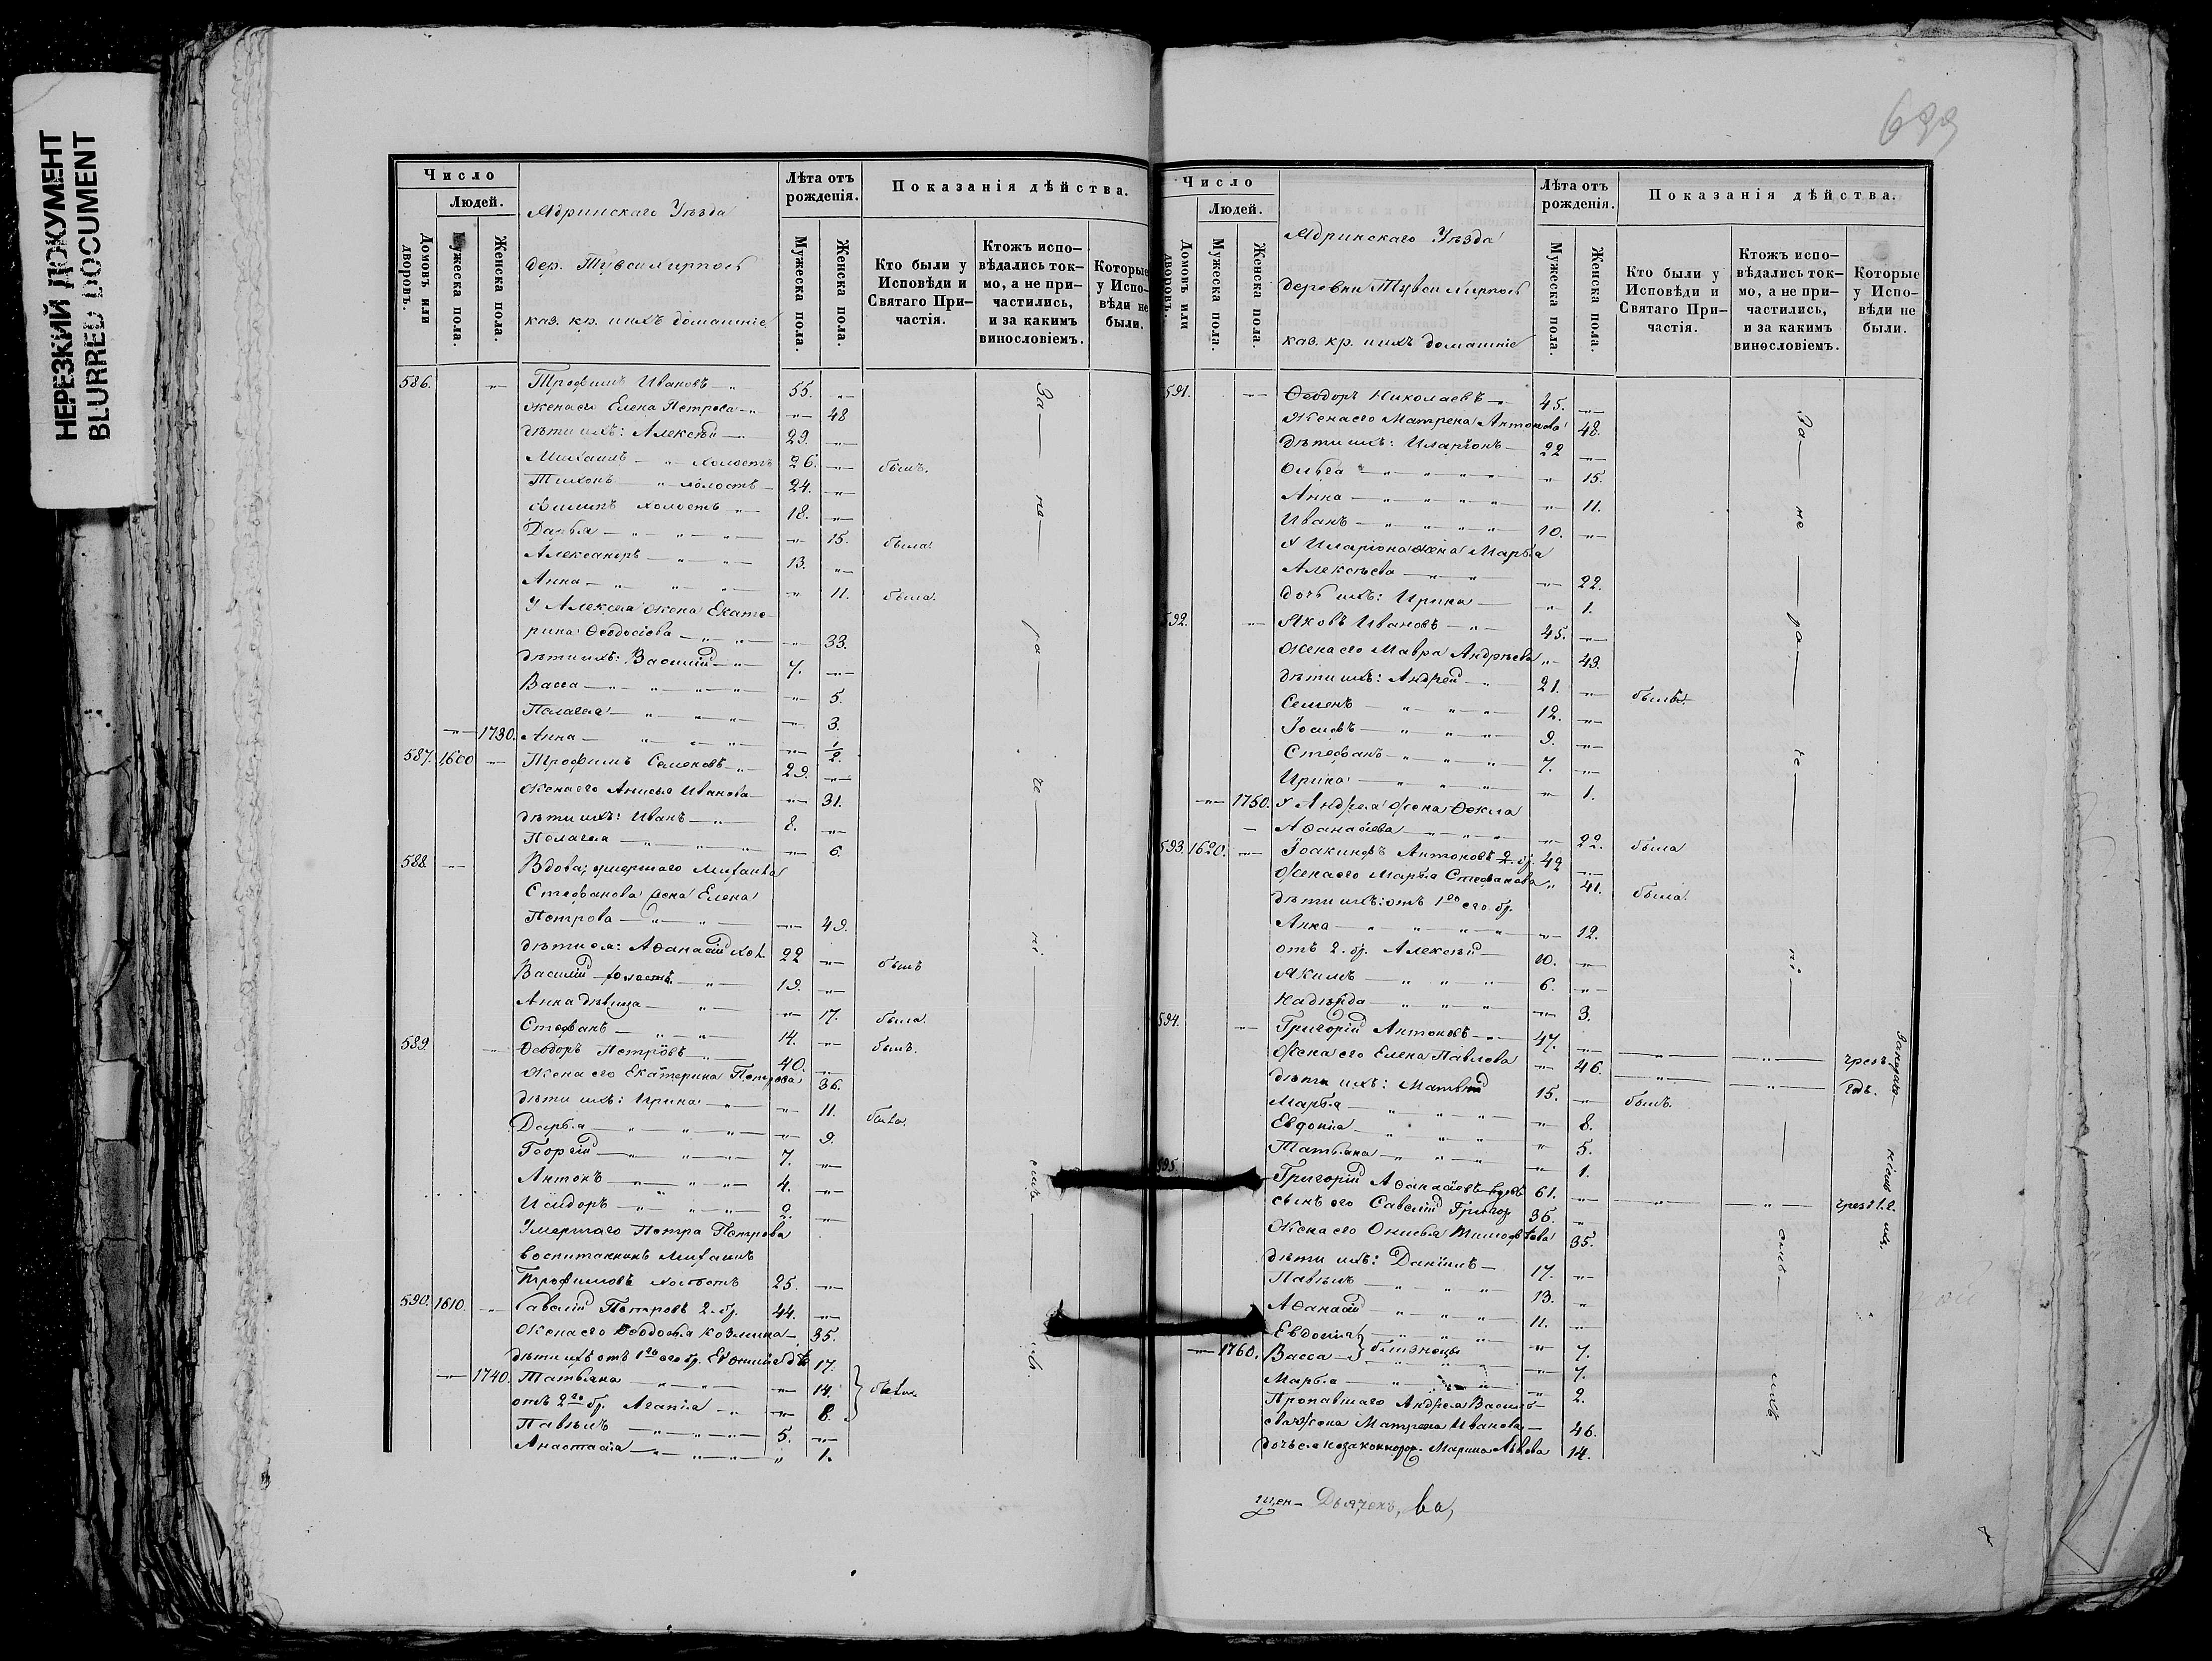 НЕРЕЗКИЙ ДОКУМЕНТ
BLURRED DOCUMENT
Число
Людей.
Домовъ или дворовъ.
Мужеска пола.
Женска пола.
Ядринскаго Уѣзда
дер.
каз. кр. и ихъ домашніе
Лѣта отъ рожденія.
Мужеска пола.
Женска пола.
Показанія дѣйства.
Кто были у Исповѣди и Святаго Причастія.
Ктожъ исповѣдались токмо, а не причастились, и за какимъ винословіемъ.
Которые у Исповѣди не были.
586. Трофимъ Ивановъ 55.
Жена его Елена Петрова 48
дѣти ихъ: Алексѣй 29.
Михаилъ холостъ 26. былъ.
Тихонъ холостъ 24.
Филипъ холостъ 18.
Дарья 15. была.
Александръ 13.
Анна 11. была.
У Алексея жена Екате
рина Ѳеодосіева 33.
дѣти ихъ: Василій 7.
Васса 5.
Пелагея 3.
1730. Анна 1/2.
587. 1600 Трофимъ Семеновъ 29.
Жена его Анисья Иванова 31.
дѣти ихъ: Иванъ 8.
Пелагея 6.
588. Вдова, умершаго Михаила
Стефанова жена Елена
Петрова 49.
дѣти ея: Аѳанасій хол. 22 былъ
Василій холостъ 19.
Анна дѣвица 17. была.
Стефанъ 14. былъ.
589. Ѳеодоръ Петровъ 40.
Жена его Екатерина Петрова 36.
дѣти ихъ: Ирина 11. была.
Дарья 9.
Георгій 7.
Антонъ 4.
Исидоръ 2.
Умершаго Петра Петрова
воспитанникъ Михаилъ
Трофимовъ холостъ 25.
590. 1610. Савелій Петровъ 2. бр. 44.
Жена его Ѳеодосья Козмина 35.
дѣти ихъ отъ 1го его бр. 17.
1740. Татьяна 14.
отъ 2го бр. Агапія 8.
Павелъ 5.
Анастасія 1.
За не ра че ні емъ
699
Число
Людей.
Домовъ или дворовъ.
Мужеска пола.
Женска пола.
Ядринскаго Уѣзда
деревни
каз. кр. и ихъ домашніе
Лѣта отъ рожденія.
Мужеска пола.
Женска пола.
Показанія дѣйства.
Кто были у Исповѣди и Святаго Причастія.
Ктожъ исповѣдались токмо, а не причастились, и за какимъ винословіемъ.
Которые у Исповѣди не были.
591. Ѳеодоръ Николаевъ 45.
Жена его Матрена Антонова 48.
дѣти ихъ: Иларіонъ 22
Ольга 15.
Анна 11.
Иванъ 10.
У Иларіона жена Марья
Алексѣева 22.
дочь ихъ: Ирина 1.
592. Яковъ Ивановъ 45.
Жена его Мавра Андреева 43.
дѣти ихъ: Андрей 21.
Семенъ 12.
Іосифъ 9.
Стефанъ 7.
Ирина 1.
1750. У Андрея жена Ѳекла
Аѳанасіева 22. была
593. 1620. Іоакинфъ Антоновъ 2. бр. 42
Жена его Марья Стефанова 41. была.
дѣти ихъ: отъ 1го его бр.
Анна 12.
отъ 2. бр. Алексѣй 10.
Якимъ 6.
Надежда 3.
594. Григорій Антоновъ 47.
Жена его Елена Павлова 46.
дѣти ихъ: Матвѣй 15. былъ.
Марья 8.
Евдокія 5.
Татьяна 1.
595. Григорій Аѳанасіевъ вдовъ 61.
сынъ его Савелій Григор 36.
Жена его Тимофѣева 35.
дѣти ихъ: Даніилъ 17.
Павелъ 13.
Аѳанасій 11.
Евдокія близнецы 7.
1760. Васса 7.
Марья 2.
Пропавшаго Андрея Василь
ева жена Матрена Иванова 46.
дочь ея незаконнорож. Марина Львова 14.
За не ра че ні емъ
щен- Дьячекъ, ва,